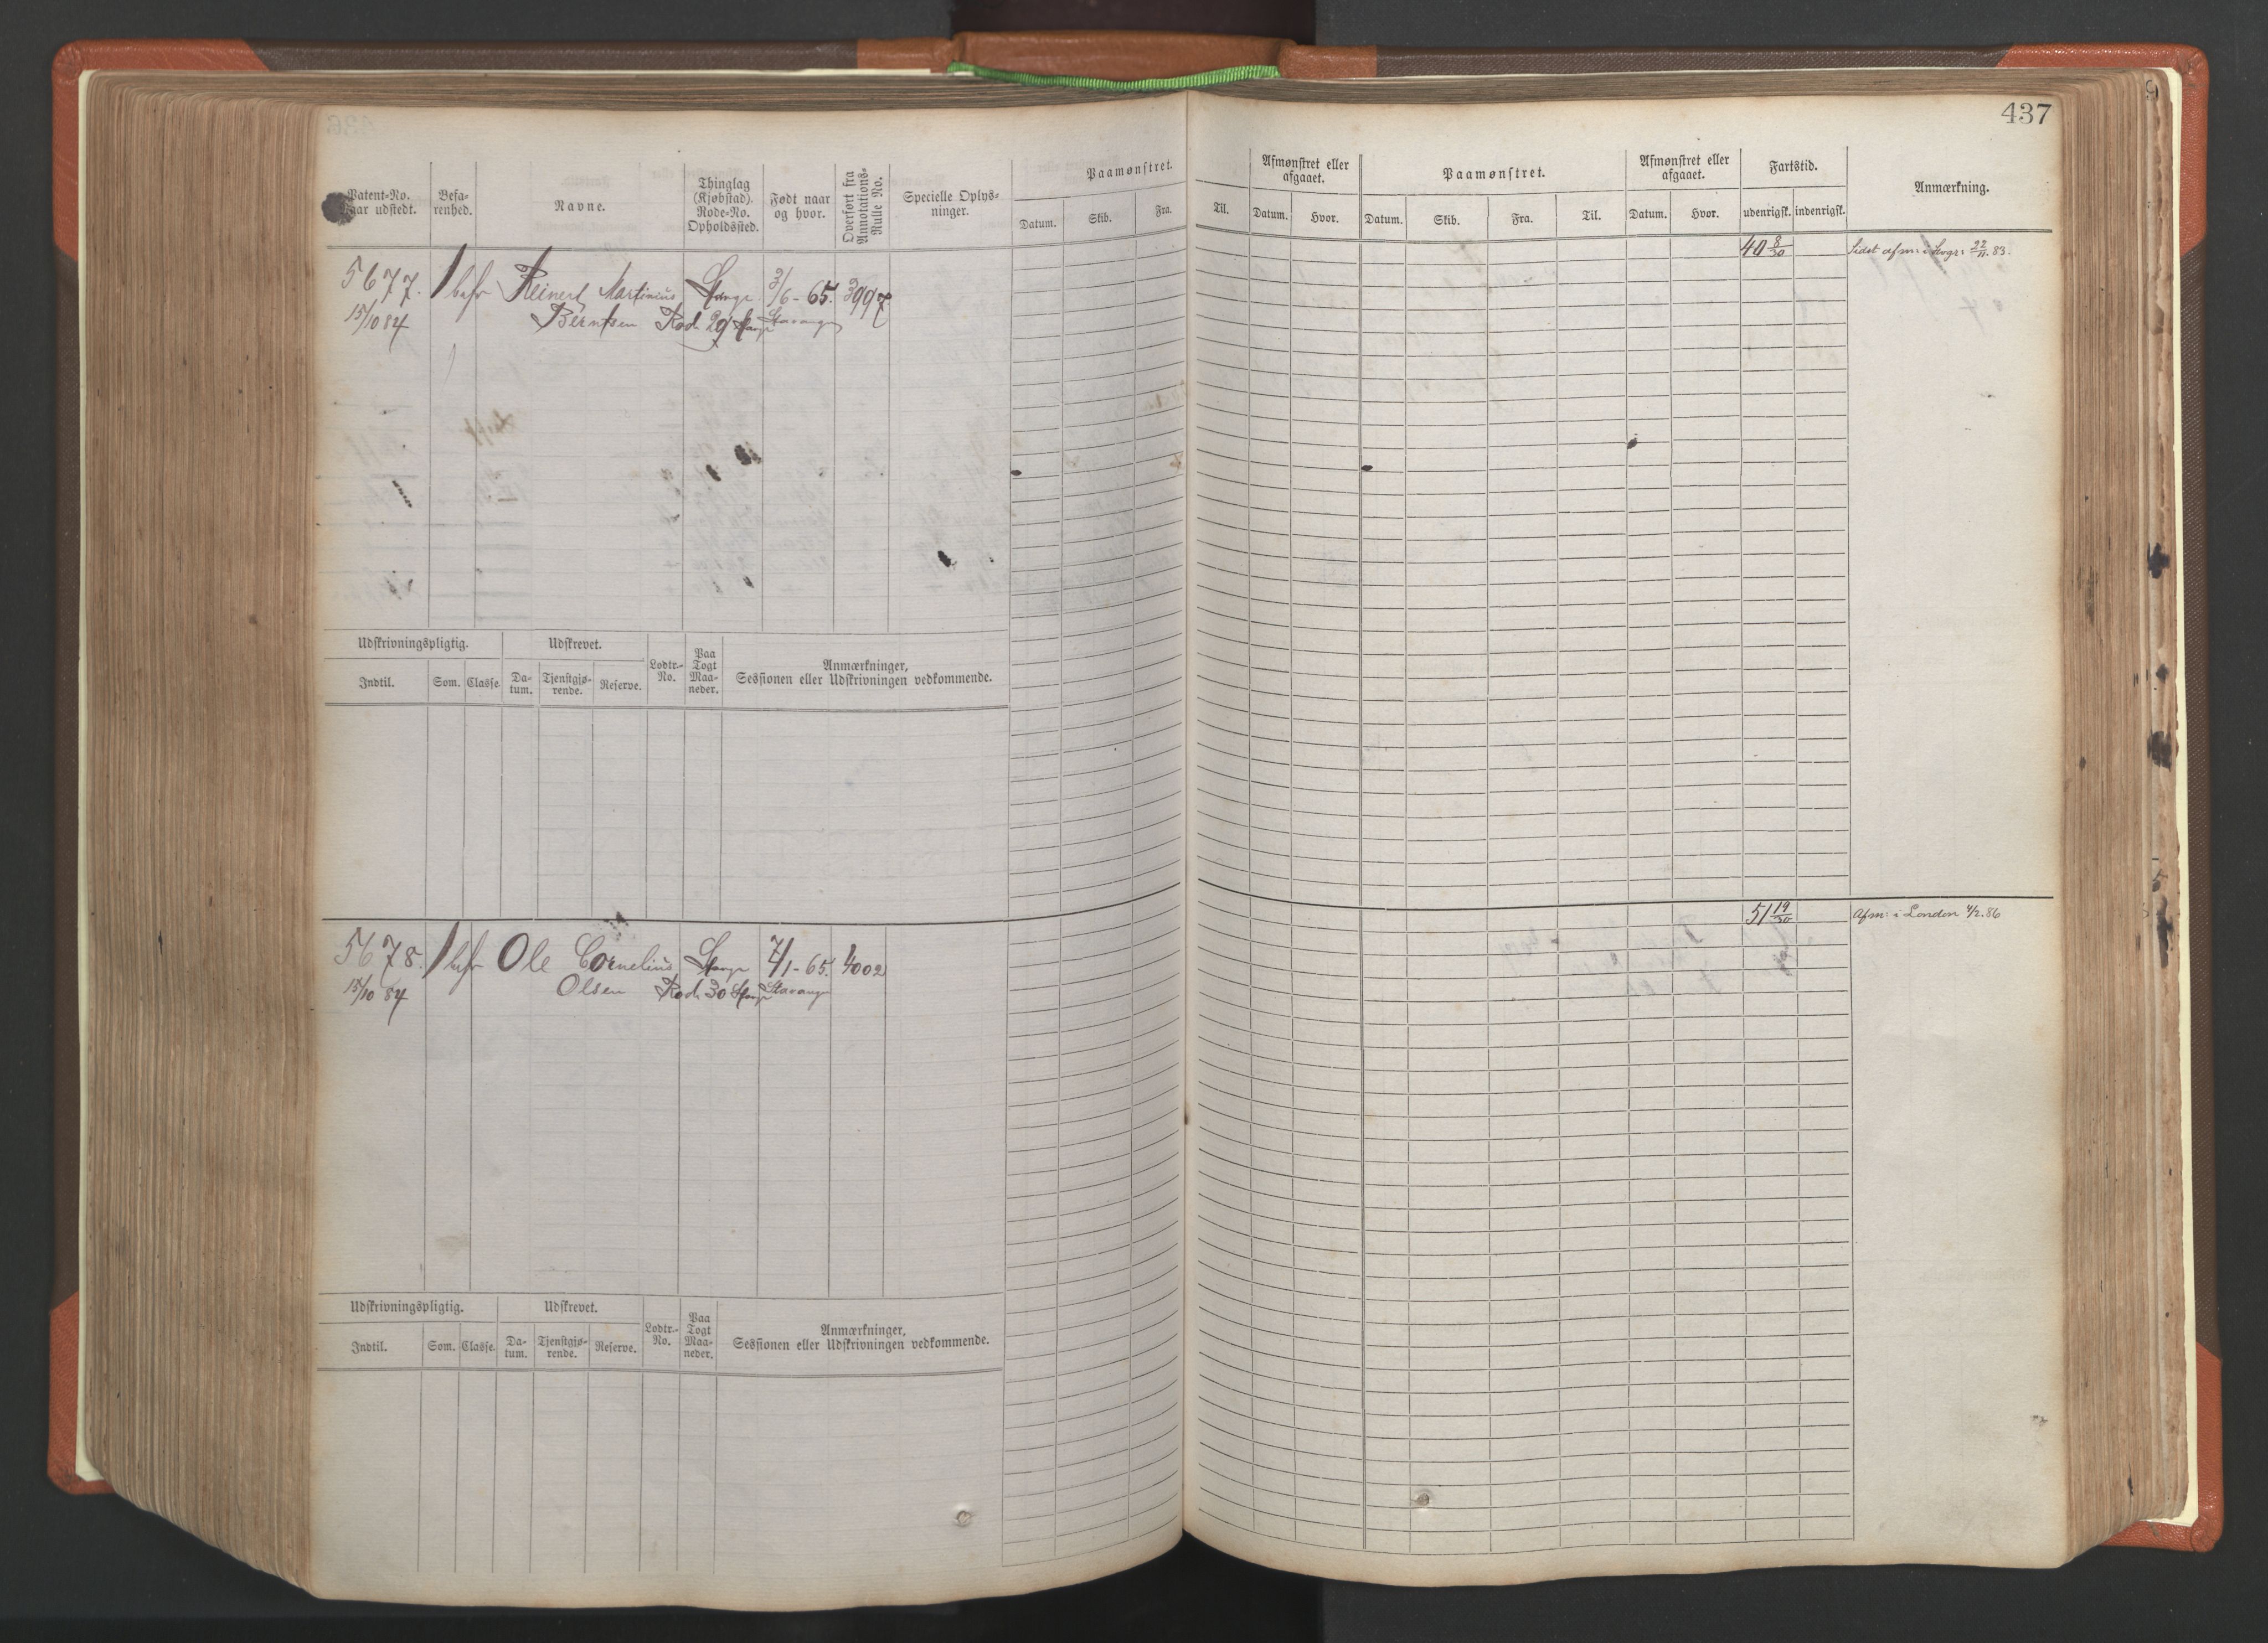 437
Patent-No.
Naar udstedt.
Befa-
renhed.
Navne.
Thinglag
(Kjøbstad).
Rode-No.
Opholdssted.
Født naar
og hvor.
Overført fra
Annotations-
Rulle No.
Specielle Oplys-
ninger.
Paamønstret.
Datum.
Skib.
Fra.
Til.
Afmønstret eller
afgaaet.
Datum.
Hvor.
Paamønstret.
Datum.
Skib.
Fra.
Til.
Afmønstret eller
afgaaet.
Datum.
Hvor.
Fartstid.
udenrigsk.
indenrigsk.
Anmærkning.
5677. 1 bef Reinert Martinius 3/6-65. 3997
15/10 84 Berntsen Rod. 29 Stavanger
40 8/30 Sidst afm: i 22/11.83.
Udskrivningspligtig.
Udskrevet.
Lodtr.-
No.
Paa
Togt
Maa-
neder.
Anmærkninger,
Sessionen eller Udskrivningen vedkommende.
Indtil.
Som.
Classe.
Da-
tum.
Tjenstgjø-
rende.
Reserve.
5678. 1 bef Ole Cornelius 7/1-65. 4002
15/10 84 Olsen Rod. 30 Stavanger
51 19/30 Afm: i London 4/2.86
Udskrivningspligtig.
Udskrevet.
Lodtr.-
No.
Paa
Togt
Maa-
neder.
Anmærkninger,
Sessionen eller Udskrivningen vedkommende.
Indtil.
Som.
Classe.
Da-
tum.
Tjenstgjø-
rende.
Reserve.